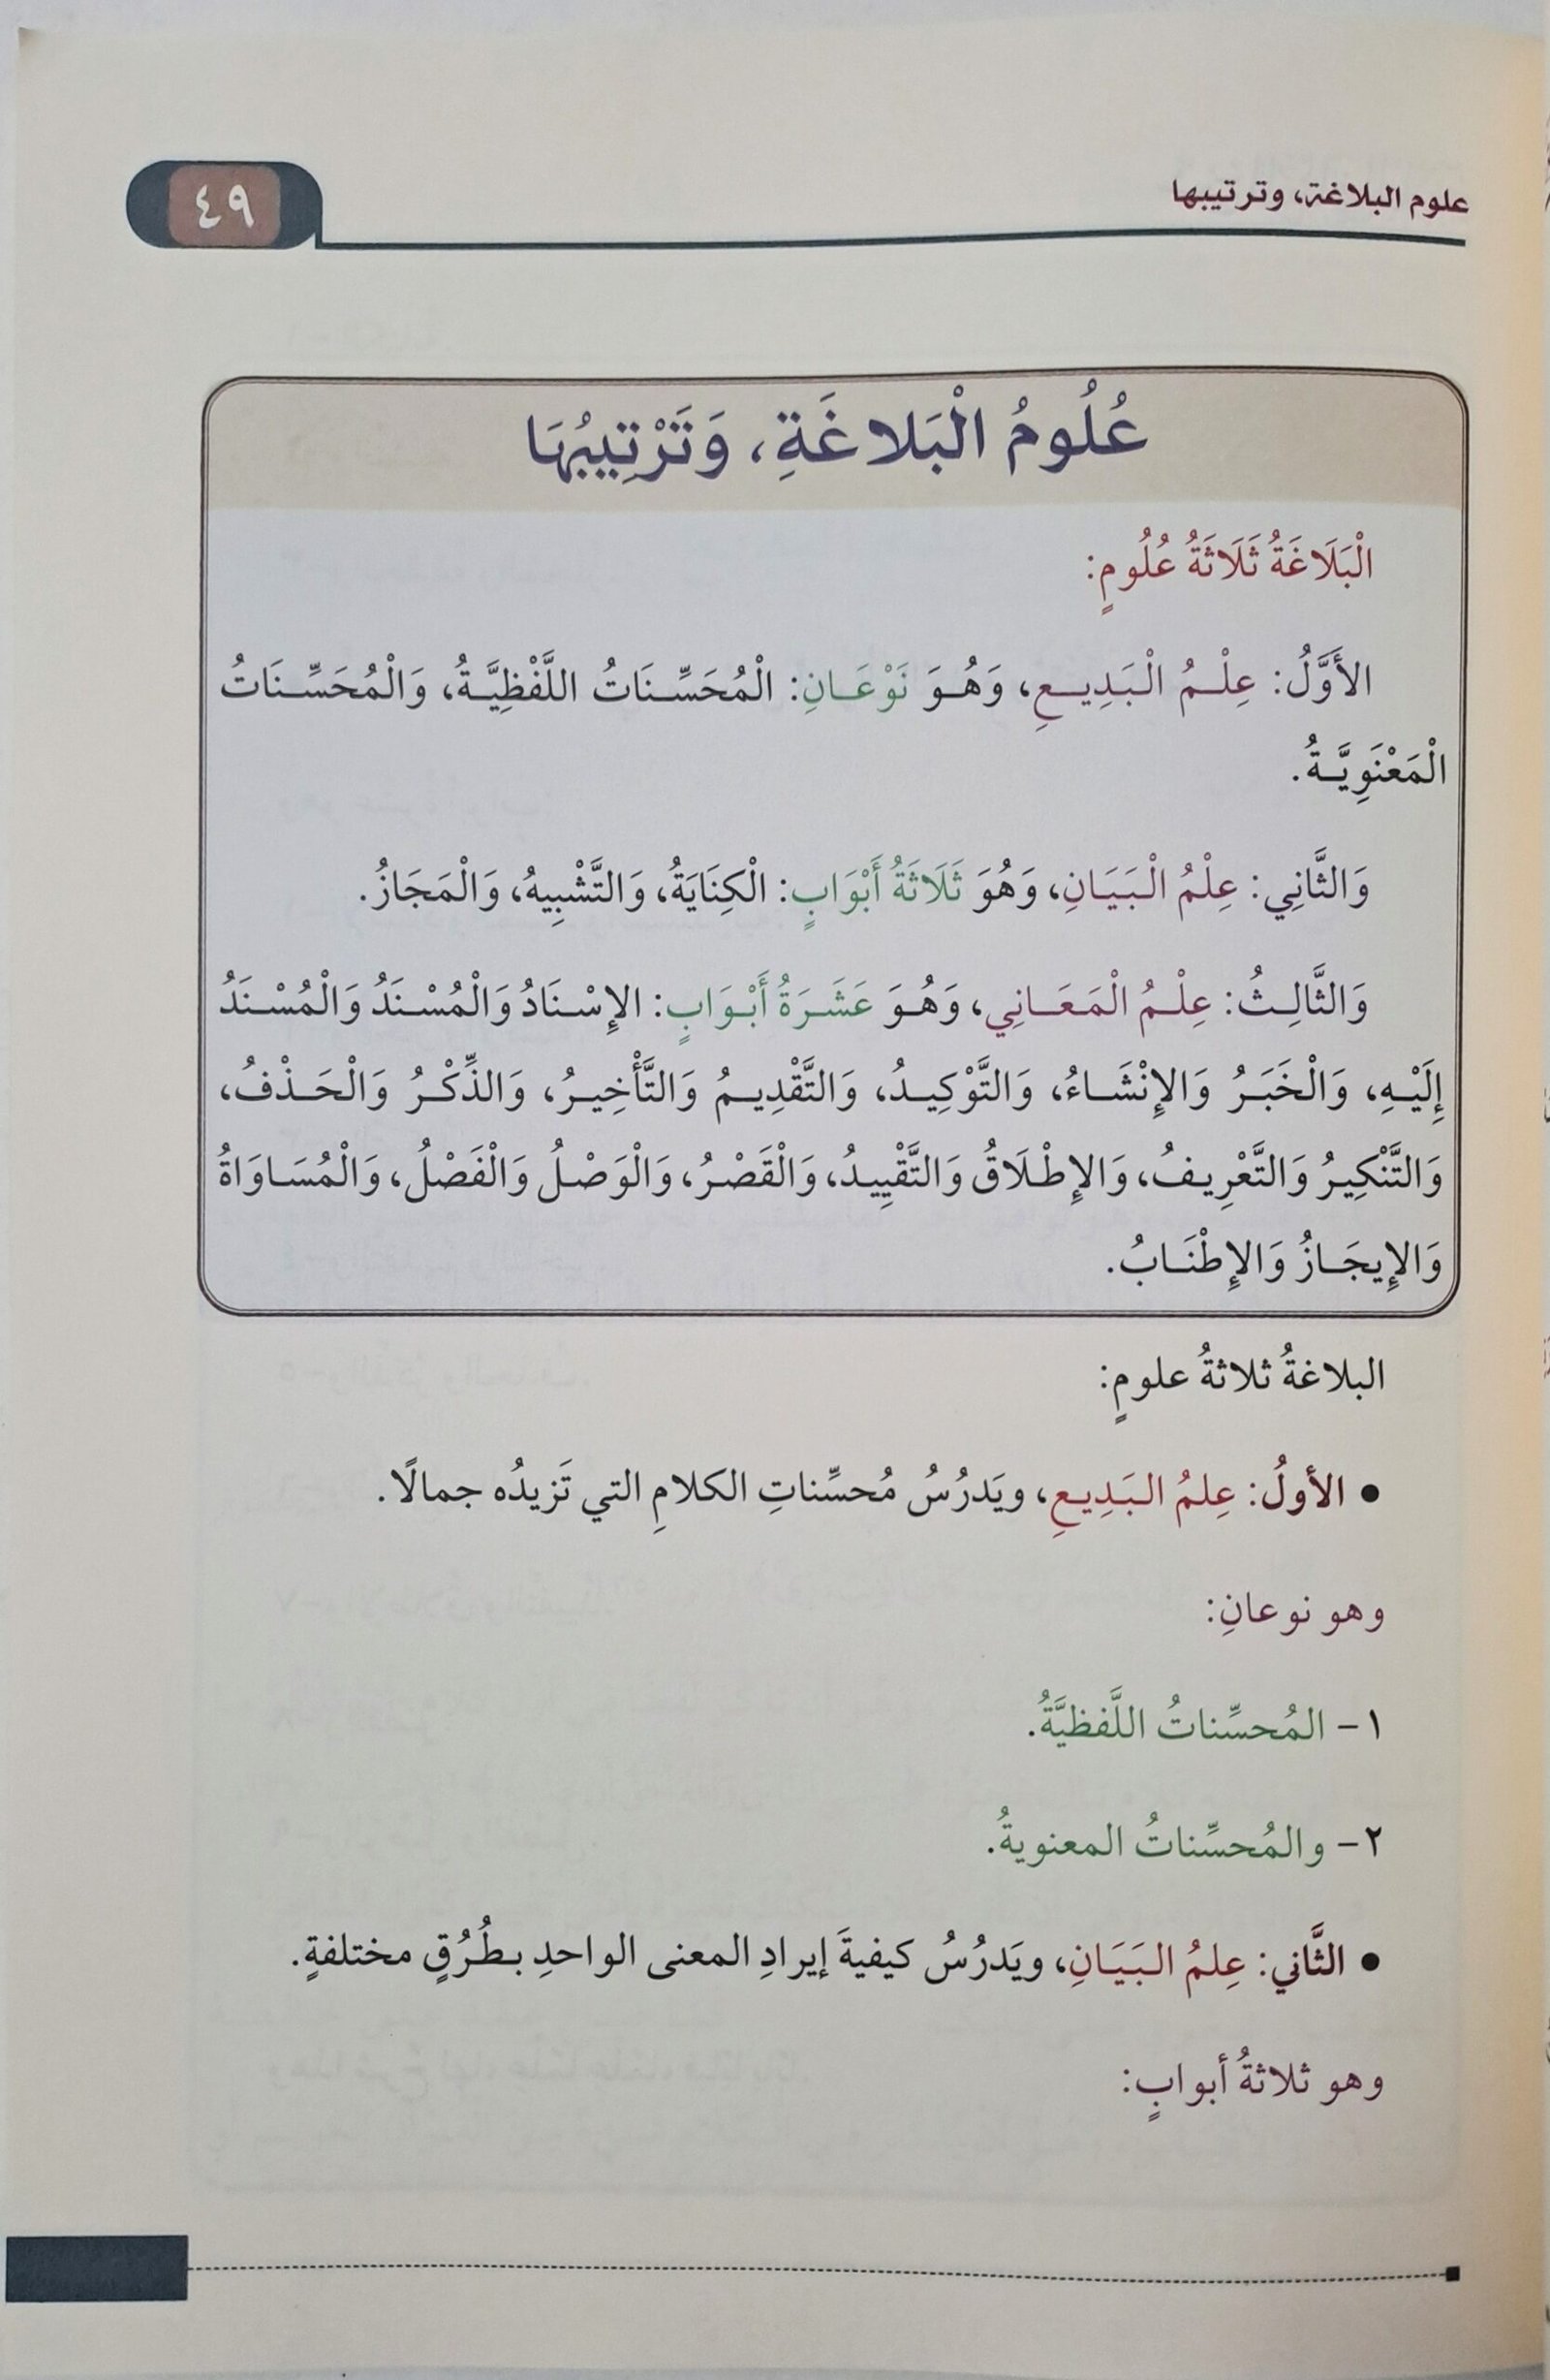 علوم البلاغة، وترتيبها
٤٩
عُلُومُ الْبَلاغَةِ، وَتَرْتِيبُهَا
الْبَلَاغَةُ ثَلَاثَةُ عُلُومٍ:
الأَوَّلُ: عِلْمُ الْبَدِيعِ، وَهُوَ نَوْعَانِ: الْمُحَسِّنَاتُ اللَّفْظِيَّةُ، وَالْمُحَسِّنَاتُ
الْمَعْنَوِيَّةُ.
وَالثَّانِي: عِلْمُ الْبَيَانِ، وَهُوَ ثَلَاثَةُ أَبْوَابٍ: الْكِنَايَةُ، وَالتَّشْبِيهُ، وَالْمَجَازُ.
وَالثَّالِثُ: عِلْمُ الْمَعَانِي، وَهُوَ عَشَرَةُ أَبْوَابٍ: الإِسْنَادُ وَالْمُسْنَدُ وَالْمُسْنَدُ
إِلَيْهِ، وَالْخَبَرُ وَالإِنْشَاءُ، وَالتَّوْكِيدُ، وَالتَّقْدِيمُ وَالتَّأْخِيرُ، وَالذِّكْرُ وَالْحَذْفُ،
وَالتَّنْكِيرُ وَالتَّعْرِيفُ، وَالإِطْلَاقُ وَالتَّقْيِيدُ، وَالْقَصْرُ، وَالْوَصْلُ وَالْفَصْلُ، وَالْمُسَاوَاةُ
وَالإِيجَازُ وَالإِطْنَابُ.
البلاغةُ ثلاثةُ علومٍ:
● الأولُ: عِلمُ البَدِيعِ، ويَدرُسُ مُحسِّناتِ الكلامِ التي تَزيدُه جمالًا.
وهو نوعانِ:
١- المُحسِّناتُ اللَّفظيَّةُ.
٢- والمُحسِّناتُ المعنويةُ.
● الثَّاني: عِلمُ البَيَانِ، ويَدرُسُ كيفيةَ إيرادِ المعنى الواحدِ بطُرُقٍ مختلفةٍ.
وهو ثلاثةُ أبوابٍ: